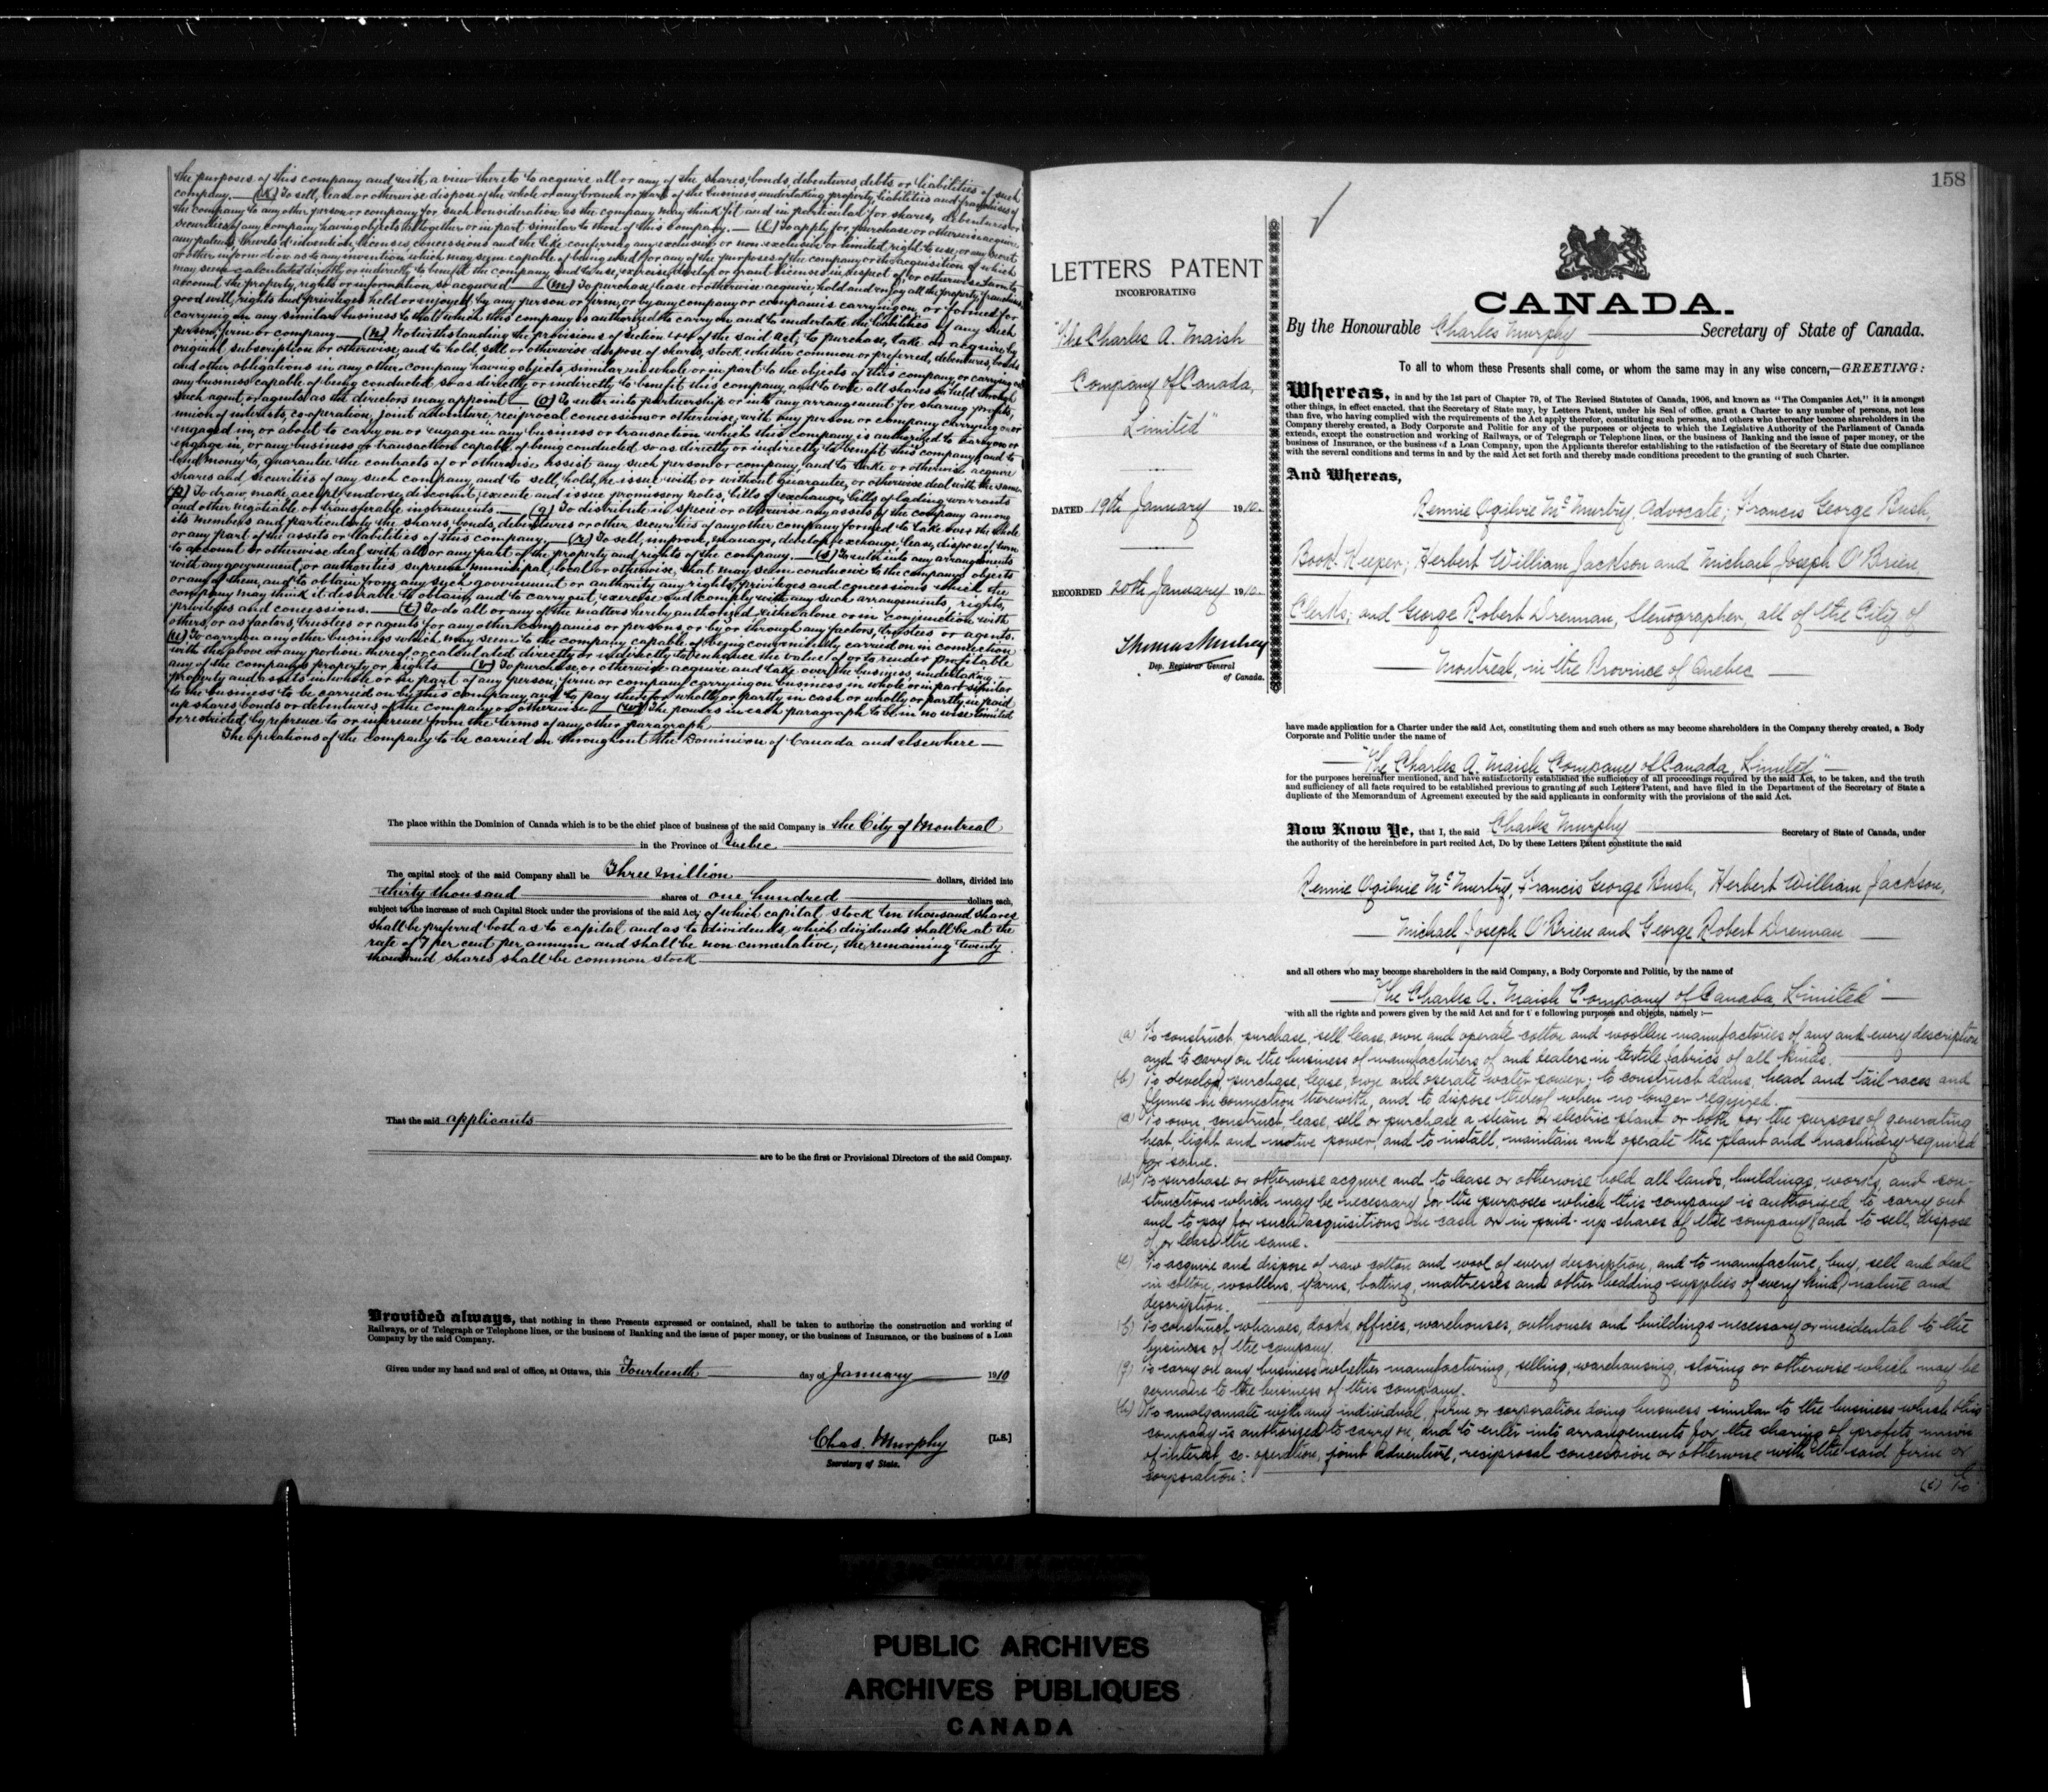 the purposes of this company and with a view thereto to acquire all or any of the shares, bonds, debentures, debts or liabilities of such
company. — (k) To sell, lease or otherwise dispose of the whole or any branch or part of the business, undertaking, property, liabilities and franchises of
the company to any other person or company for such consideration as the company may think fit and in particular for shares, debentures or
securities of any company having objects altogether or in part similar to those of this company. — (l) To apply for, purchase or otherwise acquire
any patents, brevets d'invention, licenses, concessions and the like conferring any exclusive or non exclusive or limited right to use, or any secret
or other information as to any invention which may seem capable of being used for any of the purposes of the company or the acquisition of which
may seem calculated directly or indirectly to benefit the company and to use, exercise, develop or grant licenses in respect of, or otherwise turn to
account the property, rights or information so acquired — (m) To purchase, lease or otherwise acquire, hold and enjoy all the property, franchises,
good will, rights and privileges held or enjoyed by any person or firm, or by any company or companies carrying on, or formed for
carrying on any similar business to that which this company is authorized to carry on and to undertake the liabilities of any such
person, firm or company — (n) Notwithstanding the provisions of section 44 of the said Act, to purchase, take or acquire by
original subscription or otherwise, and to hold, sell or otherwise dispose of shares, stock whether common or preferred, debentures, bonds
and other obligations in any other company having objects similar in whole or in part to the objects of this company or carrying on
any business capable of being conducted so as directly or indirectly to benefit this company, and to vote all shares so held through
such agent or agents as the directors may appoint — (o) To enter into partnership or into any arrangement for sharing profits,
union of interests, co-operation, joint adventure, reciprocal concession or otherwise, with any person or company carrying on or
engaged in, or about to carry on or engage in any business or transaction which this company is authorized to carry on or
engage in, or any business or transaction capable of being conducted so as directly or indirectly to benefit this company, and to
lend money to, guarantee the contracts of or otherwise assist any such person or company, and to take or otherwise acquire
shares and securities of any such company, and to sell, hold, re issue with or without guarantee, or otherwise deal with the same.
(p) To draw, make, accept, endorse, discount, execute and issue promissory notes, bills of exchange, bills of lading, warrants
and other negotiable or transferable instruments. — (q) To distribute in specie or otherwise any assets of the company among
its members and particularly the shares, bonds, debentures or other securities of any other company formed to take over the whole
or any part of the assets or liabilities of this company. — (r) To sell, improve, manage, develop, exchange, lease, dispose of, turn
to account or otherwise deal with all or any part of the property and rights of the company. — (s) To enter into any arrangements
with any government, or authorities supreme, municipal, local or otherwise, that may seem conducive to the company's objects
or any of them, and to obtain from any such government or authority any rights, privileges and concessions which the
company may think it desirable to obtain, and to carry out, exercise and comply with any such arrangements, rights,
privileges and concessions. — (t) To do all or any of the matters hereby authorized, either alone or in conjunction with
others, or as factors, trustees or agents for any other companies or persons, or by or through any factors, trustees or agents.
(u) To carry on any other business which may seem to the company capable of being conveniently carried on in connection
with the above or any portion thereof or calculated directly or indirectly to enhance the value of or to render profitable
any of the company's property or rights — (v) To purchase or otherwise acquire and take over the business undertaking,
property and assets in whole or in part of any person, firm or company carrying on business in whole or in part similar
to the business to be carried on by this company, and to pay therefor wholly or partly in cash or wholly or partly in paid
up shares, bonds or debentures of the company or otherwise — (w) The powers in each paragraph to be in no wise limited
or restricted by reference to or inference from the terms of any other paragraph —
The operations of the company to be carried on throughout the Dominion of Canada and elsewhere —
The place within the Dominion of Canada which is to be the chief place of business of the said Company is the City of Montreal
in the Province of Quebec
The capital stock of the said Company shall be Three Million dollars, divided into
thirty thousand shares of one hundred dollars each,
subject to the increase of such Capital Stock under the provisions of the said Act, of which capital stock ten thousand shares
shall be preferred both as to capital and as to dividends, which dividends shall be at the
rate of 7 per cent per annum and shall be non cumulative; the remaining twenty
thousand shares shall be common stock
That the said applicants
are to be the first or Provisional Directors of the said Company.
Provided always, that nothing in these Presents expressed or contained, shall be taken to authorize the construction and working of
Railways, or of Telegraph or Telephone lines, or the business of Banking and the issue of paper money, or the business of Insurance, or the business of a Loan
Company by the said Company.
Given under my hand and seal of office, at Ottawa, this Fourteenth day of January 1910
Chas. Murphy [L.S.]
Secretary of State.
158
LETTERS PATENT
INCORPORATING
"The Charles A. Maish
Company of Canada,
Limited"
DATED 19th January 1910.
RECORDED 20th January 1910.
Thomas Mulvey
Dep. Registrar General
of Canada.
CANADA.
By the Honourable Charles Murphy Secretary of State of Canada.
To all to whom these Presents shall come, or whom the same may in any wise concern,—GREETING:
Whereas, in and by the 1st part of Chapter 79, of The Revised Statutes of Canada, 1906, and known as "The Companies Act," it is amongst
other things, in effect enacted, that the Secretary of State may, by Letters Patent, under his Seal of office, grant a Charter to any number of persons, not less
than five, who having complied with the requirements of the Act apply therefor, constituting such persons, and others who thereafter become shareholders in the
Company thereby created, a Body Corporate and Politic for any of the purposes or objects to which the Legislative Authority of the Parliament of Canada
extends, except the construction and working of Railways, or of Telegraph or Telephone lines, or the business of Banking and the issue of paper money, or the
business of Insurance, or the business of a Loan Company, upon the Applicants therefor establishing to the satisfaction of the Secretary of State due compliance
with the several conditions and terms in and by the said Act set forth and thereby made conditions precedent to the granting of such Charter.
And Whereas,
Rennie Ogilvie McMurtry, Advocate; Francis George Bush,
Book-Keeper; Herbert William Jackson and Michael Joseph O'Brien,
Clerks; and George Robert Drennan, Stenographer, all of the City of
Montreal, in the Province of Quebec
have made application for a Charter under the said Act, constituting them and such others as may become shareholders in the Company thereby created, a Body
Corporate and Politic under the name of
"The Charles A. Maish Company of Canada, Limited"
for the purposes hereinafter mentioned, and have satisfactorily established the sufficiency of all proceedings required by the said Act, to be taken, and the truth
and sufficiency of all facts required to be established previous to granting of such Letters Patent, and have filed in the Department of the Secretary of State a
duplicate of the Memorandum of Agreement executed by the said applicants in conformity with the provisions of the said Act.
Now Know Ye, that I, the said Charles Murphy Secretary of State of Canada, under
the authority of the hereinbefore in part recited Act, Do by these Letters Patent constitute the said
Rennie Ogilvie McMurtry, Francis George Bush, Herbert William Jackson,
Michael Joseph O'Brien and George Robert Drennan
and all others who may become shareholders in the said Company, a Body Corporate and Politic, by the name of
"The Charles A. Maish Company of Canada, Limited"
with all the rights and powers given by the said Act and for t e following purposes and objects, namely :—
(a) To construct, purchase, sell, lease, own and operate cotton and woollen manufactories of any and every description
and to carry on the business of manufacturers of and dealers in textile fabrics of all kinds.
(b) To develop, purchase, lease, own and operate water power; to construct dams, head and tail races and
flumes in connection therewith, and to dispose thereof when no longer required.
(c) To own, construct, lease, sell or purchase a steam or electric plant or both for the purpose of generating
heat, light and motive power, and to install, maintain and operate the plant and machinery required
for same.
(d) To purchase or otherwise acquire and to lease or otherwise hold all lands, buildings, works, and con-
structions which may be necessary for the purposes which this company is authorized to carry out
and to pay for such acquisitions in cash or in paid-up shares of the company, and to sell, dispose
of or lease the same.
(e) To acquire and dispose of raw cotton and wool of every description, and to manufacture, buy, sell and deal
in cotton, woollens, yarns, batting, mattresses and other bedding supplies of every kind, nature and
description.
(f) To construct wharves, docks, offices, warehouses, outhouses and buildings necessary or incidental to the
business of the company.
(g) To carry on any business whether manufacturing, selling, warehousing, storing or otherwise which may be
germane to the business of this company.
(h) To amalgamate with any individual, firm or corporation doing business similar to the business which this
company is authorized to carry on, and to enter into arrangements for the sharing of profits, union
of interest, co-operation, joint adventure, reciprocal concession or otherwise with the said firm or
corporation:
(i) To
PUBLIC ARCHIVES
ARCHIVES PUBLIQUES
CANADA